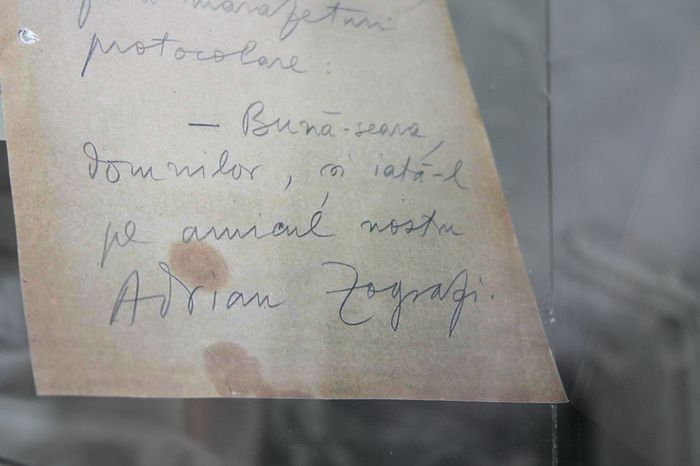 marafeturi
protocolare:
— Bună-seara,
domnilor, și iată-l
pe amicul nostru
Adrian Zografi.